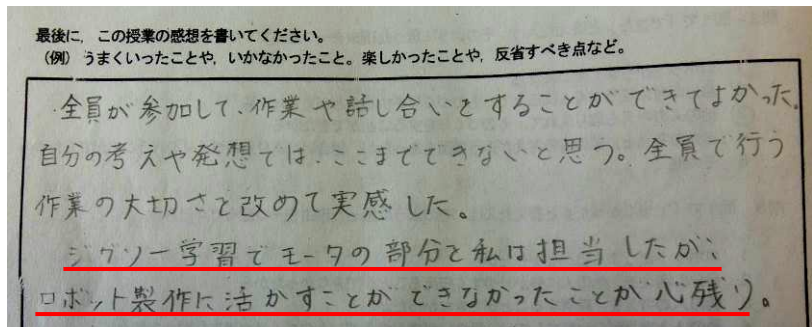 最後に，この授業の感想を書いてください。
（例）うまくいったことや，いかなかったこと。楽しかったことや，反省すべき点など。
全員が参加して、作業や話し合いをすることができてよかった。
自分の考えや発想では、ここまでできないと思う。全員で行う
作業の大切さを改めて実感した。
ジグソー学習でモータの部分を私は担当したが、
ロボット製作に活かすことができなかったことが心残り。